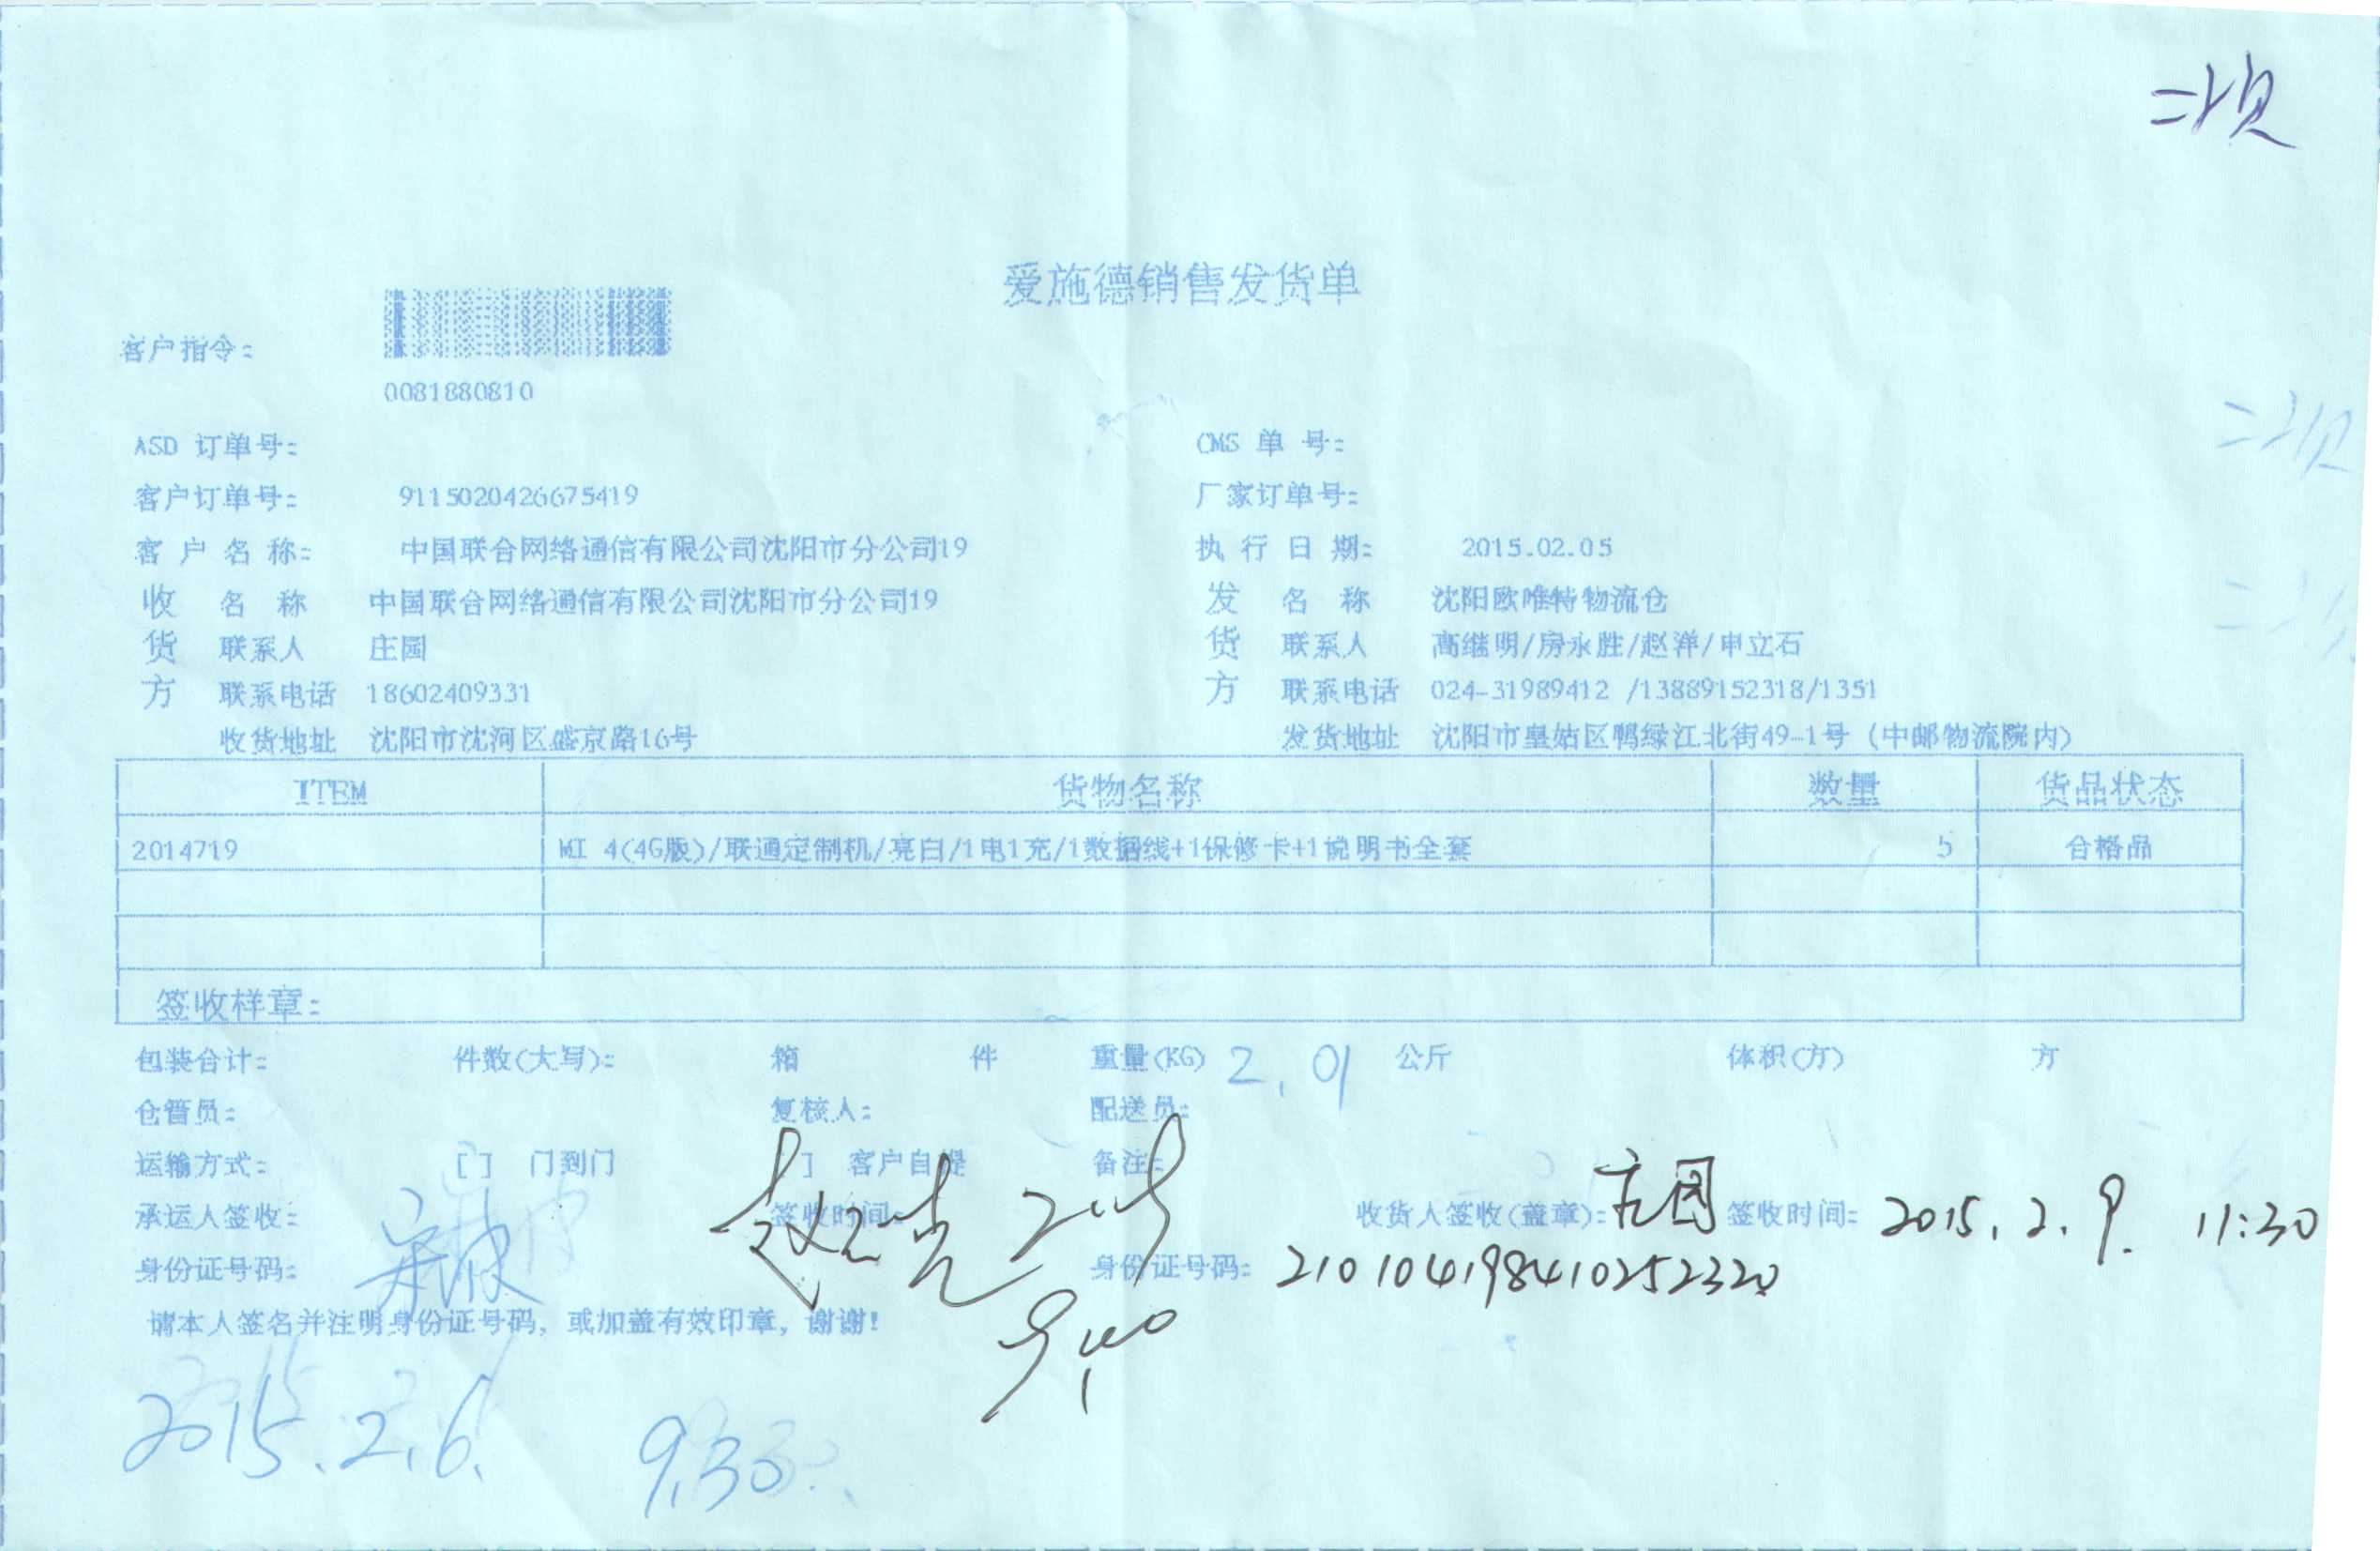 爱施德销售发货单
客户指令:
0081880810
ASD 订单号: CMS 单 号:
客户订单号: 9115020426675419 厂家订单号:
客 户 名 称: 中国联合网络通信有限公司沈阳市分公司19 执 行 日 期: 2015.02.05
收 名 称 中国联合网络通信有限公司沈阳市分公司19 发 名 称 沈阳欧唯特物流仓
货 联系人 庄园 货 联系人 高继明/房永胜/赵洋/申立石
方 联系电话 18602409331 方 联系电话 024-31989412 /13889152318/1351
收货地址 沈阳市沈河区盛京路16号 发货地址 沈阳市皇姑区鸭绿江北街49-1号 (中邮物流院内)
ITEM 货物名称 数量 货品状态
2014719 MI 4(4G版)/联通定制机/亮白/1电1充/1数据线+1保修卡+1说明书全套 5 合格品
签收样章:
包装合计: 件数(大写): 箱 件 重量(KG) 2.01 公斤 体积(方) 方
仓管员: 复核人: 配送员:
运输方式: [ ] 门到门 ] 客户自提 备注:
承运人签收: 签收时间: 收货人签收(盖章): 庄园 签收时间: 2015.2.9. 11:30
身份证号码: 身份证号码: 210104198410252320
请本人签名并注明身份证号码, 或加盖有效印章, 谢谢!
2015.2.6. 9.30